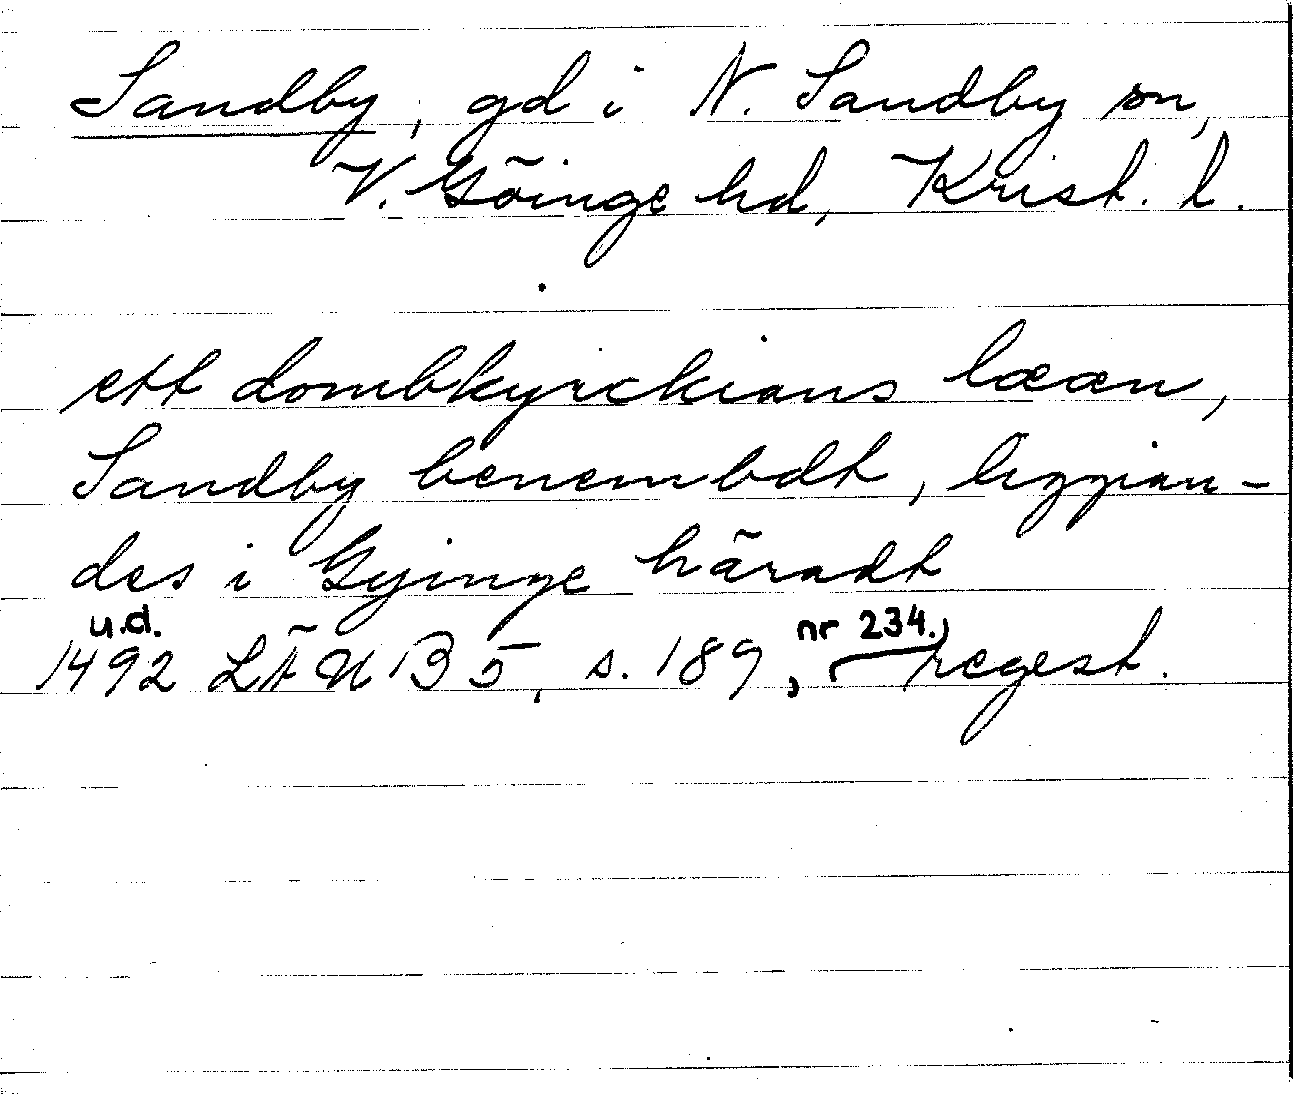 Sandby, gd i N. Sandby sn,
V. Göinge hd, Krist. l.
ett dombkyrckians lææn,
Sandby benembdt, liggian-
des i Gyinge häradt
u.d.
1492 LÄUB 5, s. 189, nr 234. regest.